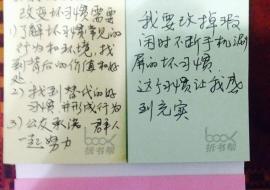 改变坏习惯需要
1)了解坏习惯常见的
行为和环境,找
到背后的价值和好
处
2)找到替代的好
习惯并形成行为
3)公众承诺 一群人
一起努力
book
拆书帮
我要改掉的
闲时不断手机漏
屏的坏习惯.
这个习惯让我感
到充实
book
拆书帮